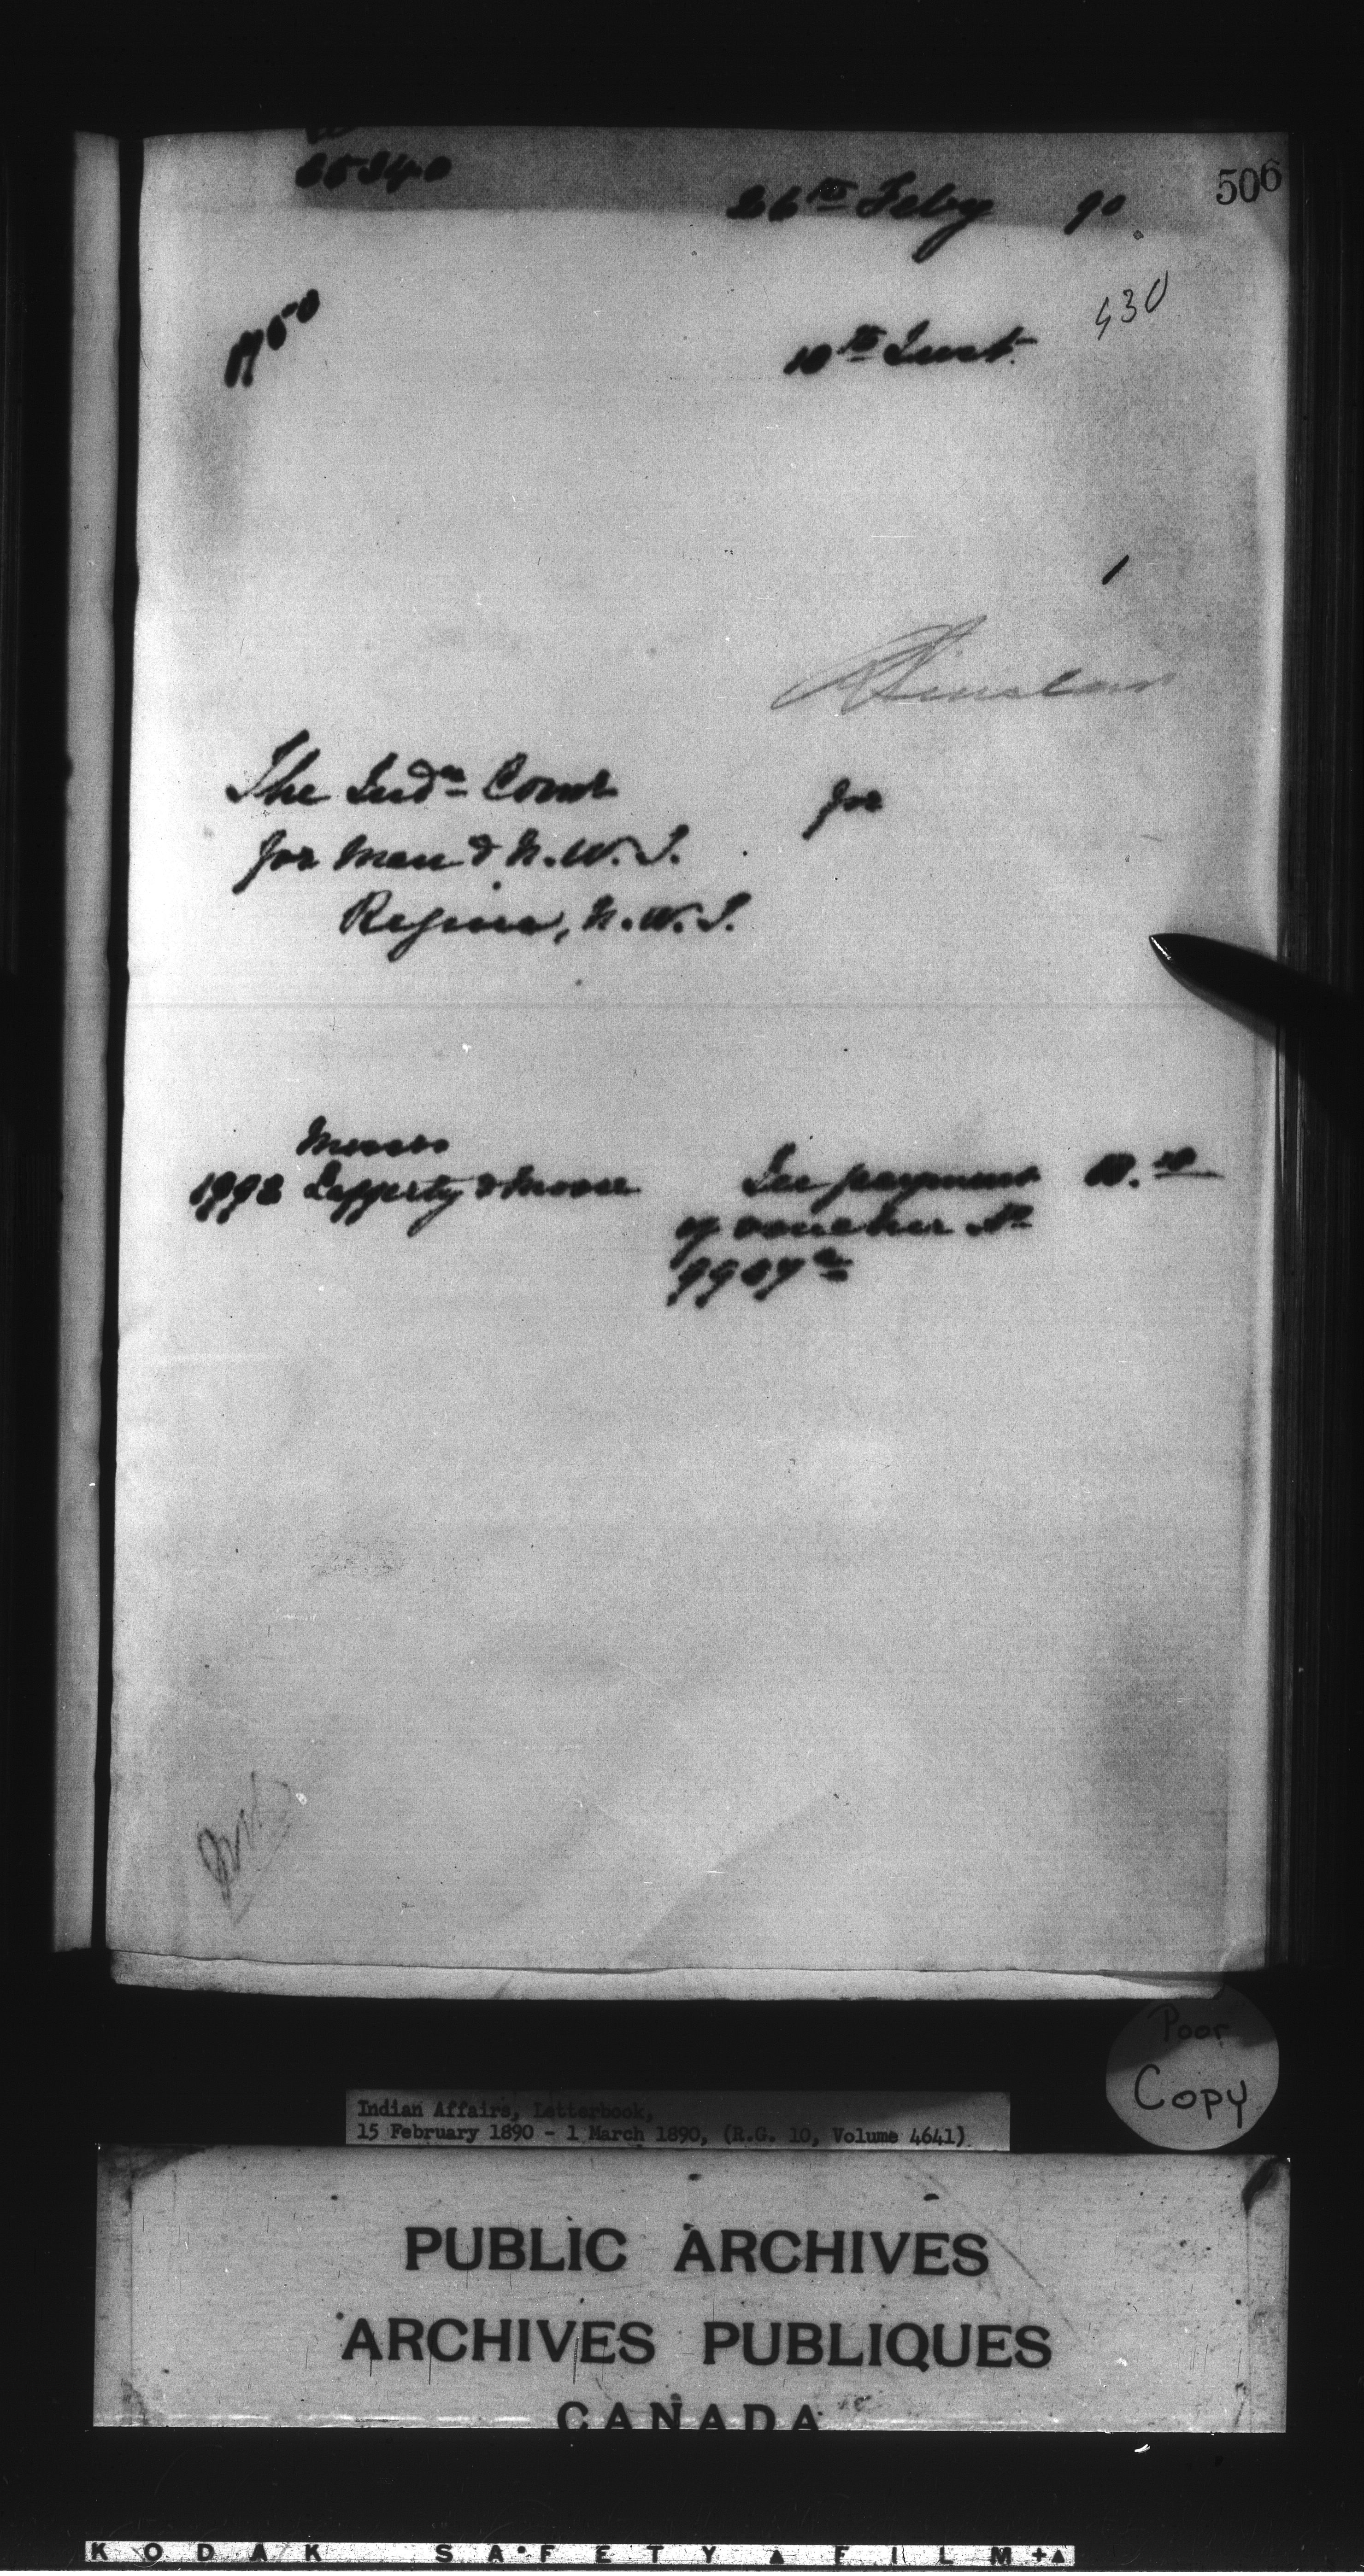 506
26th Feby 90
430
10th Inst.
The Indn Comr for
for Man & N.W.T.
Regina, N.W.T.
Messrs
1992 Lafferty & Moore In payment
of voucher No
Poor
Copy
Indian Affairs, Letterbook,
15 February 1890 - 1 March 1890, (R.G. 10, Volume 4641)
PUBLIC ARCHIVES
ARCHIVES PUBLIQUES
CANADA
KODAK SAFETY FILM